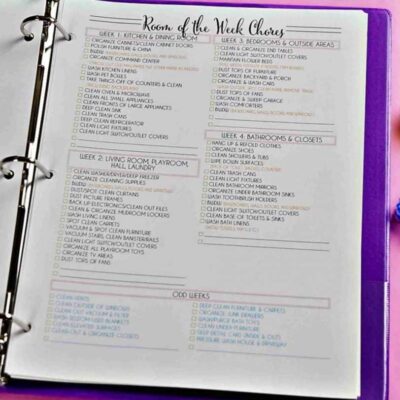 Room of the Week Chores
WEEK 1: KITCHEN & DINING ROOM
ORGANIZE CABINETS/CLEAN CABINET DOORS
POLISH FURNITURE & CHINA
ORGANIZE COMMAND CENTER
WASH KITCHEN LINENS
WASH PET BOXES
TAKE THINGS OFF OF COUNTERS & CLEAN
CLEAN OVEN & MICROWAVE
CLEAN ALL SMALL APPLIANCES
CLEAN FRONTS OF LARGE APPLIANCES
DEEP CLEAN SINK
CLEAN TRASH CANS
DEEP CLEAN REFRIGERATOR
CLEAN LIGHT FIXTURES
CLEAN LIGHT SUITCH/OUTLET COVERS
WEEK 2: LIVING ROOM, PLAYROOM,
HALL, LAUNDRY
CLEAN WASHER/DRYER/DEEP FREEZER
ORGANIZE CLEANING SUPPLIES
DUST/SPOT CLEAN CURTAINS
DUST PICTURE FRAMES
BACK UP ELECTRONICS/CLEAN OUT FILES
CLEAN & ORGANIZE MUDROOM LOCKERS
WASH LIVING LINENS
SPOT CLEAN CARPETS
VACUUM & SPOT CLEAN FURNITURE
VACUUM STAIRS, CLEAN BANISTER/RAILS
CLEAN LIGHT SUITCH/OUTLET COVERS
ORGANIZE ALL PLAYROOM TOYS
ORGANIZE TV AREAS
DUST TOPS OF FANS
WEEK 3: BEDROOMS & OUTSIDE AREAS
CLEAN & ORGANIZE END TABLES
CLEAN LIGHT SUITCH/OUTLET COVERS
MAINTAIN FLOWER BEDS
DUST TOPS OF FURNITURE
ORGANIZE BACKYARD & PORCH
ORGANIZE & WASH CARS
DUST TOPS OF FANS
ORGANIZE & SWEEP GARAGE
WASH COMFORTERS
CLEAN LIGHT SUITCH/OUTLET COVERS
WEEK 4: BATHROOMS & CLOSETS
HANG UP & REFOLD CLOTHES
ORGANIZE SHOES
CLEAN SHOWERS & TUBS
WIPE DOWN SURFACES
CLEAN TRASH CANS
CLEAN LIGHT FIXTURES
CLEAN BATHROOM MIRRORS
ORGANIZE UNDER BATHROOM SINKS
WASH TOOTHBRUSH HOLDERS
CLEAN LIGHT SUITCH/OUTLET COVERS
CLEAN BASE OF TOILETS & SINKS
WASH BATH LINENS
ODD WEEKS
CLEAN VENTS
CLEAN OUTSIDE OF WINDOWS
CLEAN OUT VACUUM & FILTER
WASH SELDOM USED BLANKETS
CLEAN OUT & ORGANIZE CLOSETS
DEEP CLEAN FURNITURE & CARPETS
ORGANIZE JUNK DRAWERS
WASH/PURGE BATH TOYS
CLEAN UNDER FURNITURE
DEEP DETAIL CARS INSIDE & OUT
PRESSURE WASH HOUSE & DRIVEWAY